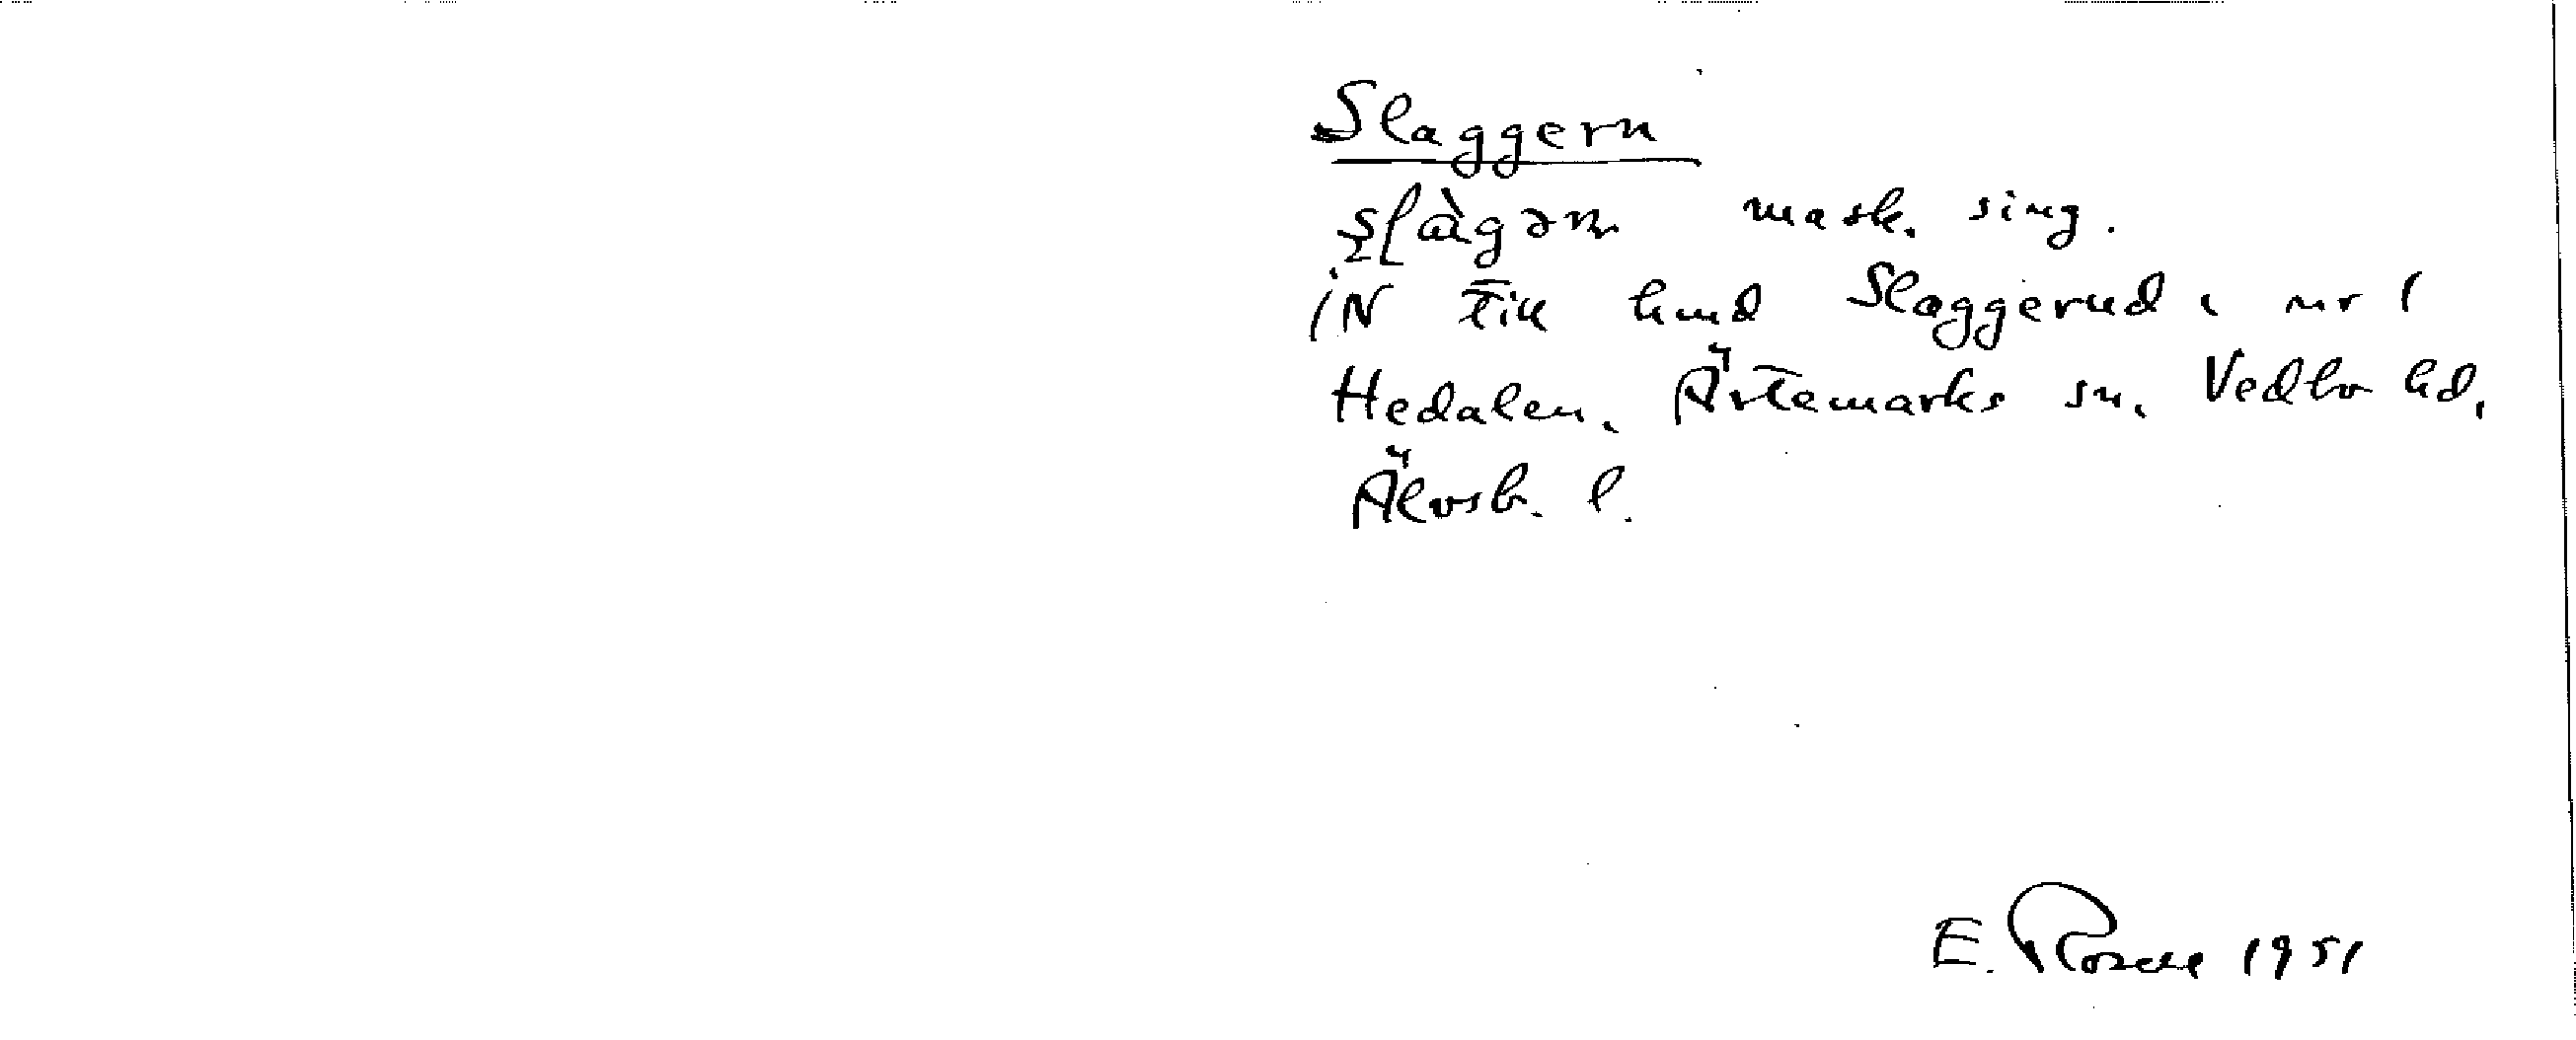 Slaggern
mask. sing.
IN till hmd Slaggerud, nr 1
Hedalen, Ärtemarks sn, Vedbo hd,
Älvsb. l.
E. Rosell 1951